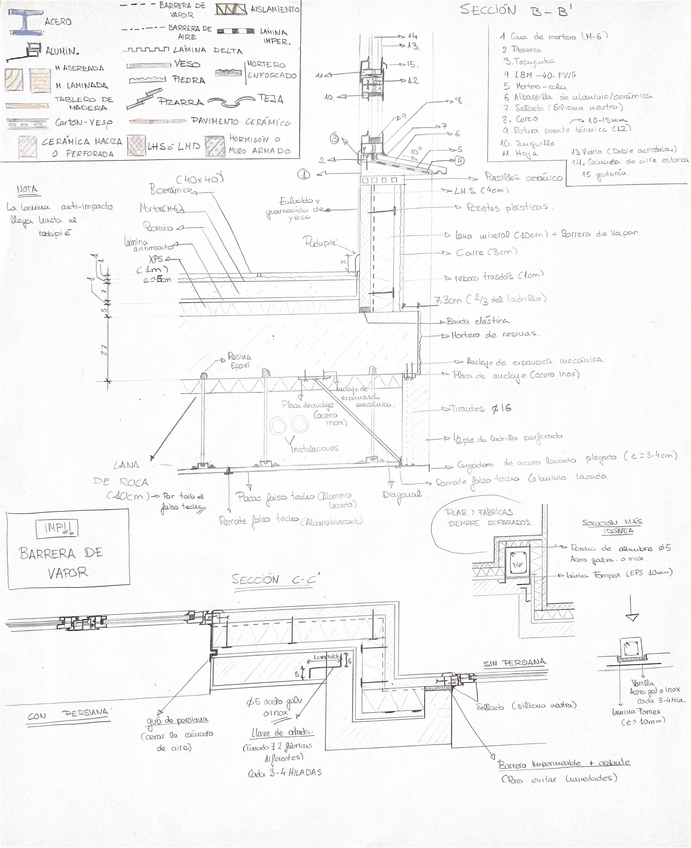 ACERO
ALUMIN.
M. ASERRADA
M. LAMINADA
TABLERO DE
MADERA
CARTÓN-YESO
CERÁMICA MACIZA
O PERFORADA
BARRERA DE
VAPOR
BARRERA DE
AIRE
LÁMINA DELTA
YESO
PIEDRA
PIZARRA
PAVIMENTO CERÁMICO
LHS ó LHD
AISLAMIENTO
LÁMINA
IMPER.
MORTERO
ENFOSCADO
TEJA
HORMIGÓN O
MURO ARMADO
SECCIÓN B-B'
1 Cua de mortero (M-6)
2 Precerco
3. Tapajuntas
4 LBM-40-FV/G
5 Mortero-cola
7 Sellado (Silicona neutra)
8 Cerco
10-15mm
9 Rotura puente térmico (L2)
10 Junquillo
11 Hoja
13 Vidrio (Doble acristala.)
15 goterón
14
13
9
15
11
12
10
8
7
6
5
4
3
2
1
10°
NOTA
La lámina anti-impacto
llega hasta el
rodapié
(40x40)
B. cerámico
Mortero (M-6)
lámina
antiimpacto
XPS
Enlucido y
guarnecido de
yeso
Rodapié
Rasillón cerámico
L.H.S (4cm)
Rosetas plásticas.
Lana mineral (10cm) + Barrera de Vapor
C. aire (3cm)
reboco trasdós (1cm)
7.3cm (2/3 del ladrillo)
Banda elástica
Mortero de resinas.
27
Resina
Epoxi
Placa de anclaje
(acero
inox)
Anclaje de
expansión
mecánica
Anclaje de expansión mecánica
Placa de anclaje (acero inox)
Instalaciones
Tirantes Ø16
1/2 pie de ladrillo perforado
Cargadero de acero lacado plegado (e=3-4cm)
Remate falso techo (aluminio lacado)
LANA
DE ROCA
(10cm) → Por todo el
falso techo
Placas falso techo (Aluminio
lacado)
Remate falso techo (Aluminio lacado)
Diagonal
IMP!!
BARRERA DE
VAPOR
PILAR Y FÁBRICAS
SIEMPRE SEPARADOS.
SOLUCIÓN MÁS
IDÓNEA
Pilar
Acero galva. o inox
lámina Fompex (EPS 10mm)
Varilla
Acero gal o inox
cada 3-4 hila.
Lámina Fomex
(e=10mm)
SECCIÓN C-C'
CON PERSIANA
guía de persiana
(cerrar la cámara
de aire)
Ø5 acero galv
o inox
Llave de atado.
(Cuando 2 fábricas
diferentes)
Cada 3-4 HILADAS
5
5
SIN PERSIANA
Sellado (Silicona neutra)
Barrera Impermeable + aislante
(Para evitar humedades)